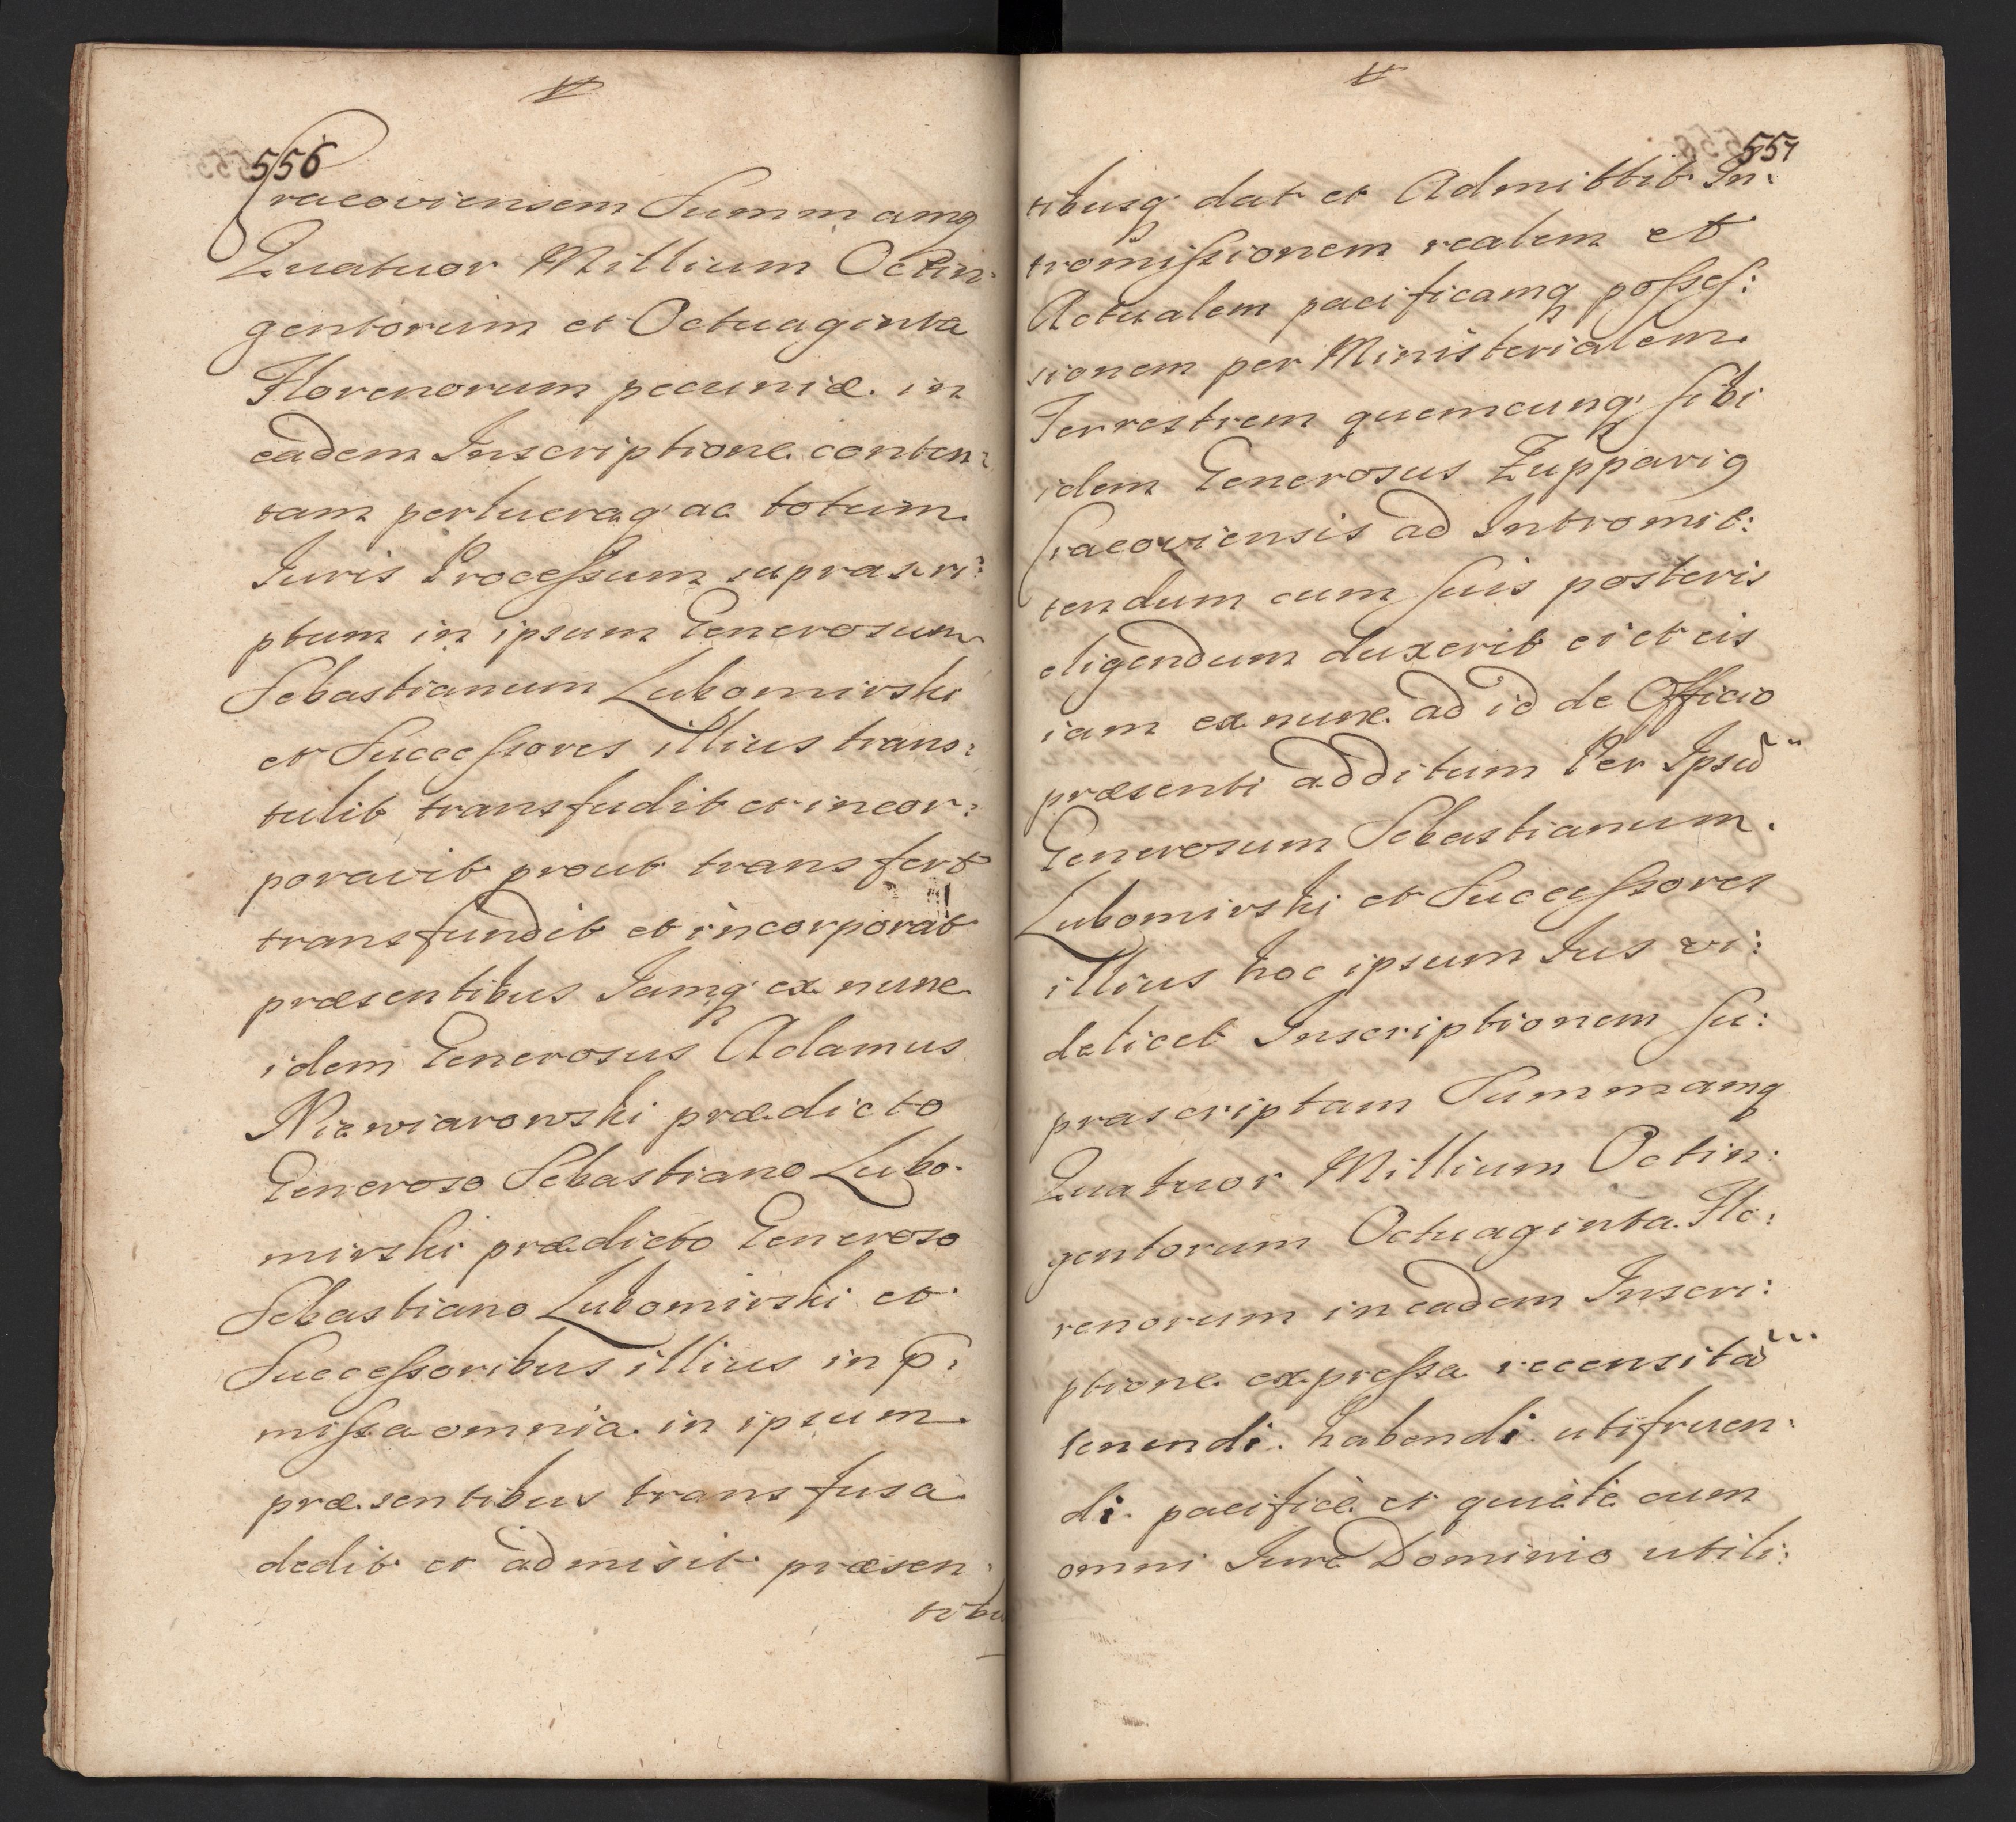 556
Cracoviensem Summamq
Quatuor Millium Octin:
gentorum et Octuaginta
Florenorum pecuniæ in
eadem Inscriptione conten:
tam perlucraq ac totum
Iuris Processum suprascri:
ptum in ipsum Generosum
Sebastianum Lubomirski
et Successores illius trans:
tulit transfudit et incor:
poravit prout transfert
transfundit et incorporat
præsentibus Iamq ex nunc
idem Generosus Adamus
Niewiarowski prædicto
Generoso Sebastiano Lubo:
mirski prædicto Generoso
Sebastiano Lubomirski et
Successoribus illius in p:
missa omnia in ipsum
præsentibus transfusa
dedit et admisit præsen:
tibu
557
tibusq dat et Admittit In:
tromissionem realem et
Actualem pacificamq posses:
sionem per Ministerialem
Terrestrem quemcunq sibi
idem Generosus Zupparig
Cracoviensis ad Intromit:
tendum cum suis posteris
eligendum duxerit ei et eis
iam ex nunc ad id de Officio
præsenti additum Per Ipsũ
Generosum Sebastianum
Lubomirski et Successores
illius hoc ipsum Ius vi:
delicet Inscriptionem su:
prascriptam Summamq
Quatuor Millium Octin:
gentorum Octuaginta Flo:
renorum in eadem Inscri:
ptione expressa recensitã
tenendi habendi utifruen:
di pacifice et quiete cum
omni Iure Dominio utili: